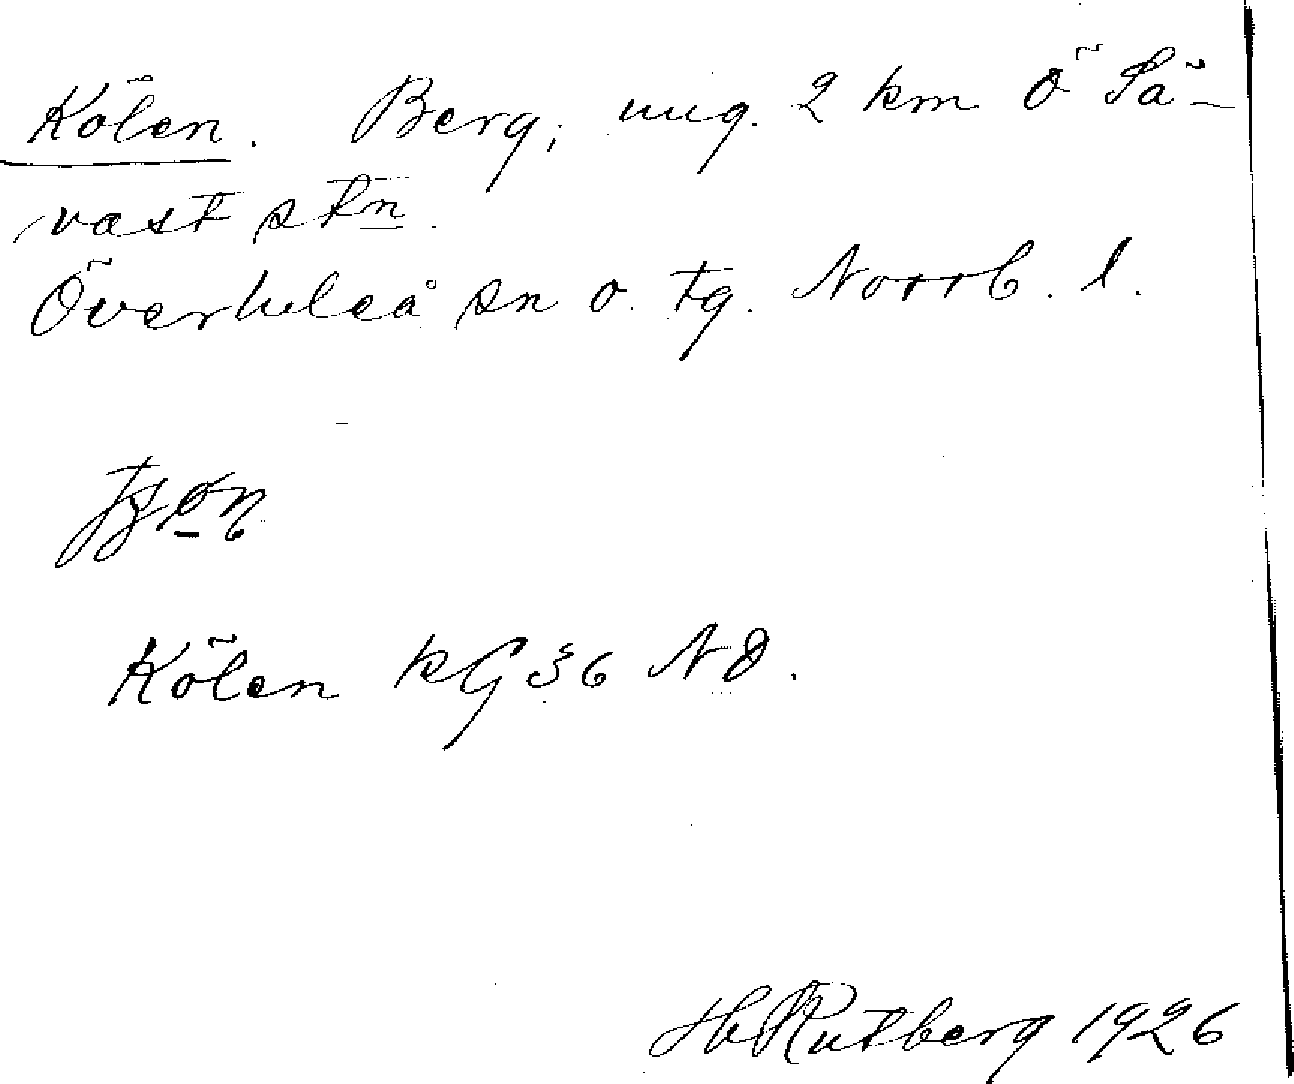 Kölen. Berg, ung. 2 km Ö Sä-
vast st<u>n</u>.
Överluleå sn o. tg. Norrb. l.
Kölen kG 36 NO.
H Rutberg 1926